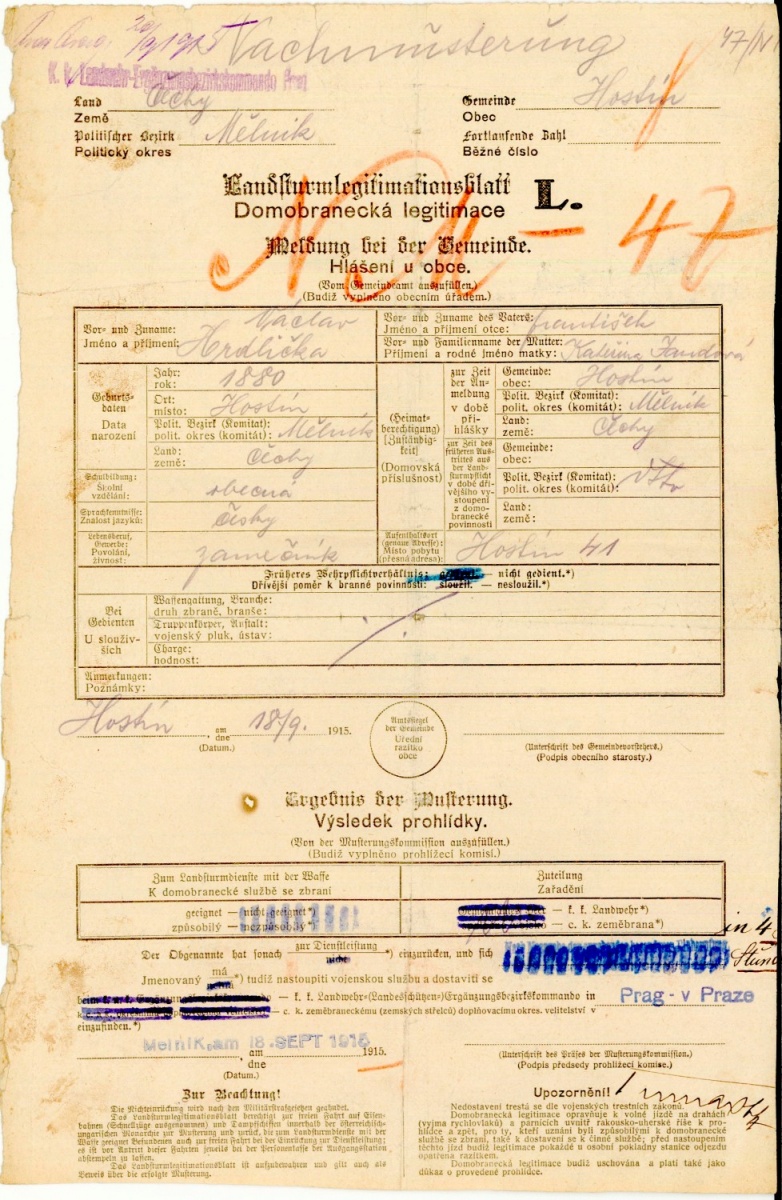 20/9 1915 Nachmusterung 47/IV
K. k. Landwehr-Ergänzungsbezirkskommando Prag
Land Čechy
Země
Politischer Bezirk Mělník
Politický okres
Gemeinde Hostín
Obec
Fortlaufende Zahl
Běžné číslo
Landsturmlegitimationsblatt
Domobranecká legitimace
L.
47
Meldung bei der Gemeinde.
Hlášení u obce.
(Vom Gemeindeamt auszufüllen.)
(Budiž vyplněno obecním úřadem.)
Vor- und Zuname: Václav
Jméno a příjmení: Hrdlička
Vor- und Zuname des Vaters: František
Jméno a příjmení otce:
Vor- und Familienname der Mutter:
Příjmení a rodné jméno matky: Kateřina Jandová
Geburtsdaten
Data narození
Jahr:
rok: 1880
Ort:
místo: Hostín
Polit. Bezirk (Komitat):
polit. okres (komitát): Mělník
Land:
země: Čechy
(Heimatberechtigung)
[Zuständigkeit]
(Domovská příslušnost)
zur Zeit der Anmeldung
v době přihlášky
Gemeinde: Hostín
obec:
Polit. Bezirk (Komitat):
polit. okres (komitát): Mělník
Land:
země: Čechy
zur Zeit des früheren Austrittes aus der Landsturmpflicht
v době dřívějšího vystoupení z domobranecké povinnosti
Gemeinde:
obec:
Polit. Bezirk (Komitat):
polit. okres (komitát):
Land:
země:
Schulbildung:
Školní vzdělání: obecná
Sprachkenntnisse:
Znalost jazyků: česky
Lebensberuf, Gewerbe:
Povolání, živnost: zámečník
Aufenthaltsort (genaue Adresse):
Místo pobytu (přesná adresa): Hostín 41
Früheres Wehrpflichtverhältnis: — nicht gedient.*)
Dřívější poměr k branné povinnosti: sloužil. — nesloužil.*)
Bei Gedienten
U sloužívších
Waffengattung, Branche:
druh zbraně, branše:
Truppenkörper, Anstalt:
vojenský pluk, ústav:
Charge:
hodnost:
Anmerkungen:
Poznámky:
Hostín, am dne 18/9. 1915.
(Datum.)
Amtssiegel der Gemeinde
Úřední razítko obce
(Unterschrift des Gemeindevorstehers.)
(Podpis obecního starosty.)
Ergebnis der Musterung.
Výsledek prohlídky.
(Von der Musterungskommission auszufüllen.)
(Budiž vyplněno prohlížecí komisí.)
Zum Landsturmdienste mit der Waffe
K domobranecké službě se zbraní
Zuteilung
Zařadění
geeignet — nicht geeignet*)
způsobilý — nezpůsobilý*)
— k. k. Landwehr*)
— c. k. zeměbrana*)
Der Obgenannte hat sonach zur Dienstleistung nicht *) einzurücken, und sich
Jmenovaný má nemá *) tudíž nastoupiti vojenskou službu a dostaviti se
— k. k. Landwehr-(Landesschützen-)Ergänzungsbezirkskommando in Prag - v Praze
— c. k. zeměbraneckému (zemských střelců) doplňovacímu okres. velitelství v
einzufinden.*)
Melník, am 18. SEPT 1915
, am dne 1915.
(Datum.)
(Unterschrift des Präses der Musterungskommission.)
(Podpis předsedy prohlížecí komise.)
Zur Beachtung!
Die Nichteinrückung wird nach den Militärstrafgesetzen geahndet.
Das Landsturmlegitimationsblatt berechtigt zur freien Fahrt auf Eisenbahnen (Schnellzüge ausgenommen) und Dampfschiffen innerhalb der österreichisch-ungarischen Monarchie zur Musterung und zurück, die zum Landsturmdienste mit der Waffe geeignet Befundenen auch zur freien Fahrt bei der Einrückung zur Dienstleistung; es ist vor Antritt dieser Fahrten jeweils bei der Personenkasse der Ausgangsstation abstempeln zu lassen.
Das Landsturmlegitimationsblatt ist aufzubewahren und gilt auch als Beweis über die erfolgte Musterung.
Upozornění!
Nedostavení trestá se dle vojenských trestních zákonů.
Domobranecká legitimace opravňuje k volné jízdě na drahách (vyjma rychlovlaků) a parnících uvnitř rakousko-uherské říše k prohlídce a zpět, pro ty, kteří uznáni byli způsobilými k domobranecké službě se zbraní, také k dostavení se k činné službě; před nastoupením těchto jízd budiž legitimace pokaždé u osobní pokladny stanice odjezdu opatřena razítkem.
Domobranecká legitimace budiž uschována a platí také jako důkaz o provedené prohlídce.